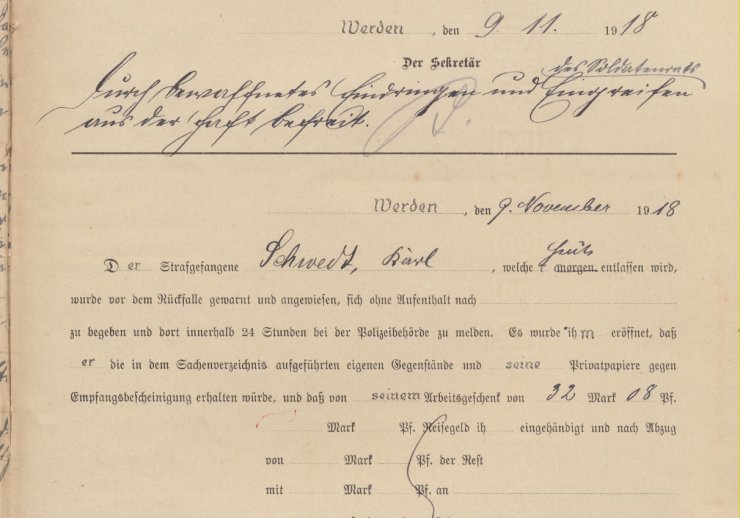 Werden, den 9. 11. 1918
Der Sekretär
des Soldatenrats
Durch bewaffnetes Eindringen und Eingreifen
aus der Haft befreit.
Werden, den 9. November 1918
Der Strafgefangene Schwedt, Karl, welcher heute morgen entlassen wird,
wurde vor dem Rückfalle gewarnt und angewiesen, sich ohne Aufenthalt nach
zu begeben und dort innerhalb 24 Stunden bei der Polizeibehörde zu melden. Es wurde ihm eröffnet, daß
er die in dem Sachenverzeichnis aufgeführten eigenen Gegenstände und seine Privatpapiere gegen
Empfangsbescheinigung erhalten würde, und daß von seinem Arbeitsgeschenk von 32 Mark 08 Pf.
Mark Pf. Reisegeld ih eingehändigt und nach Abzug
von Mark Pf. der Rest
mit Mark Pf. an